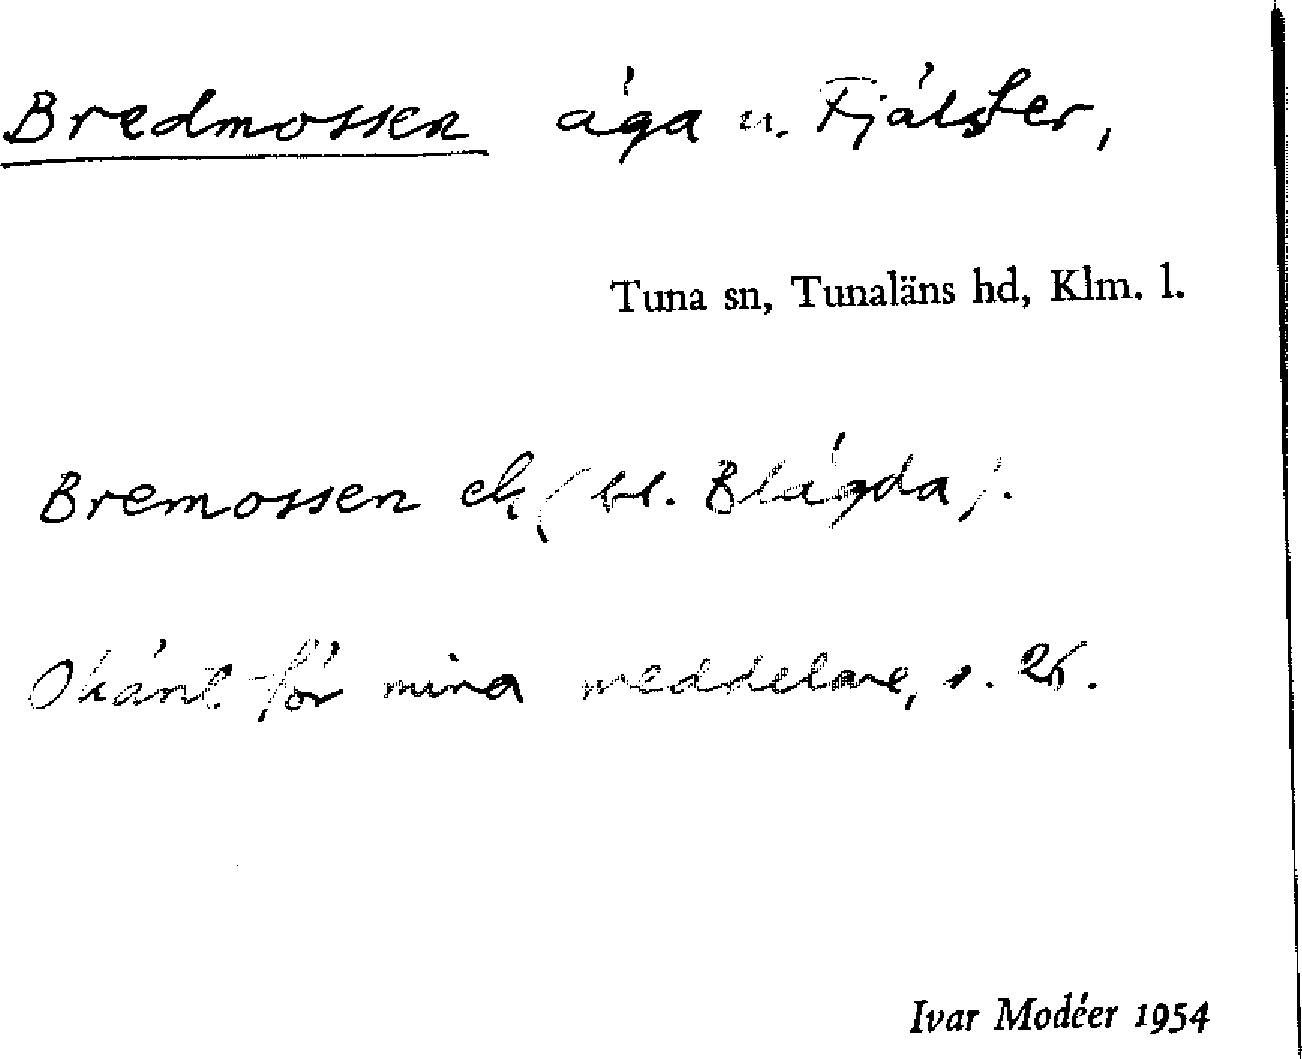 Bredmossen äga u. Fjälster,
Tuna sn, Tunaläns hd, Klm. l.
Bremossen ek (bl. Blägda).
Okänt för mina meddelare, s. 26.
Ivar Modéer 1954